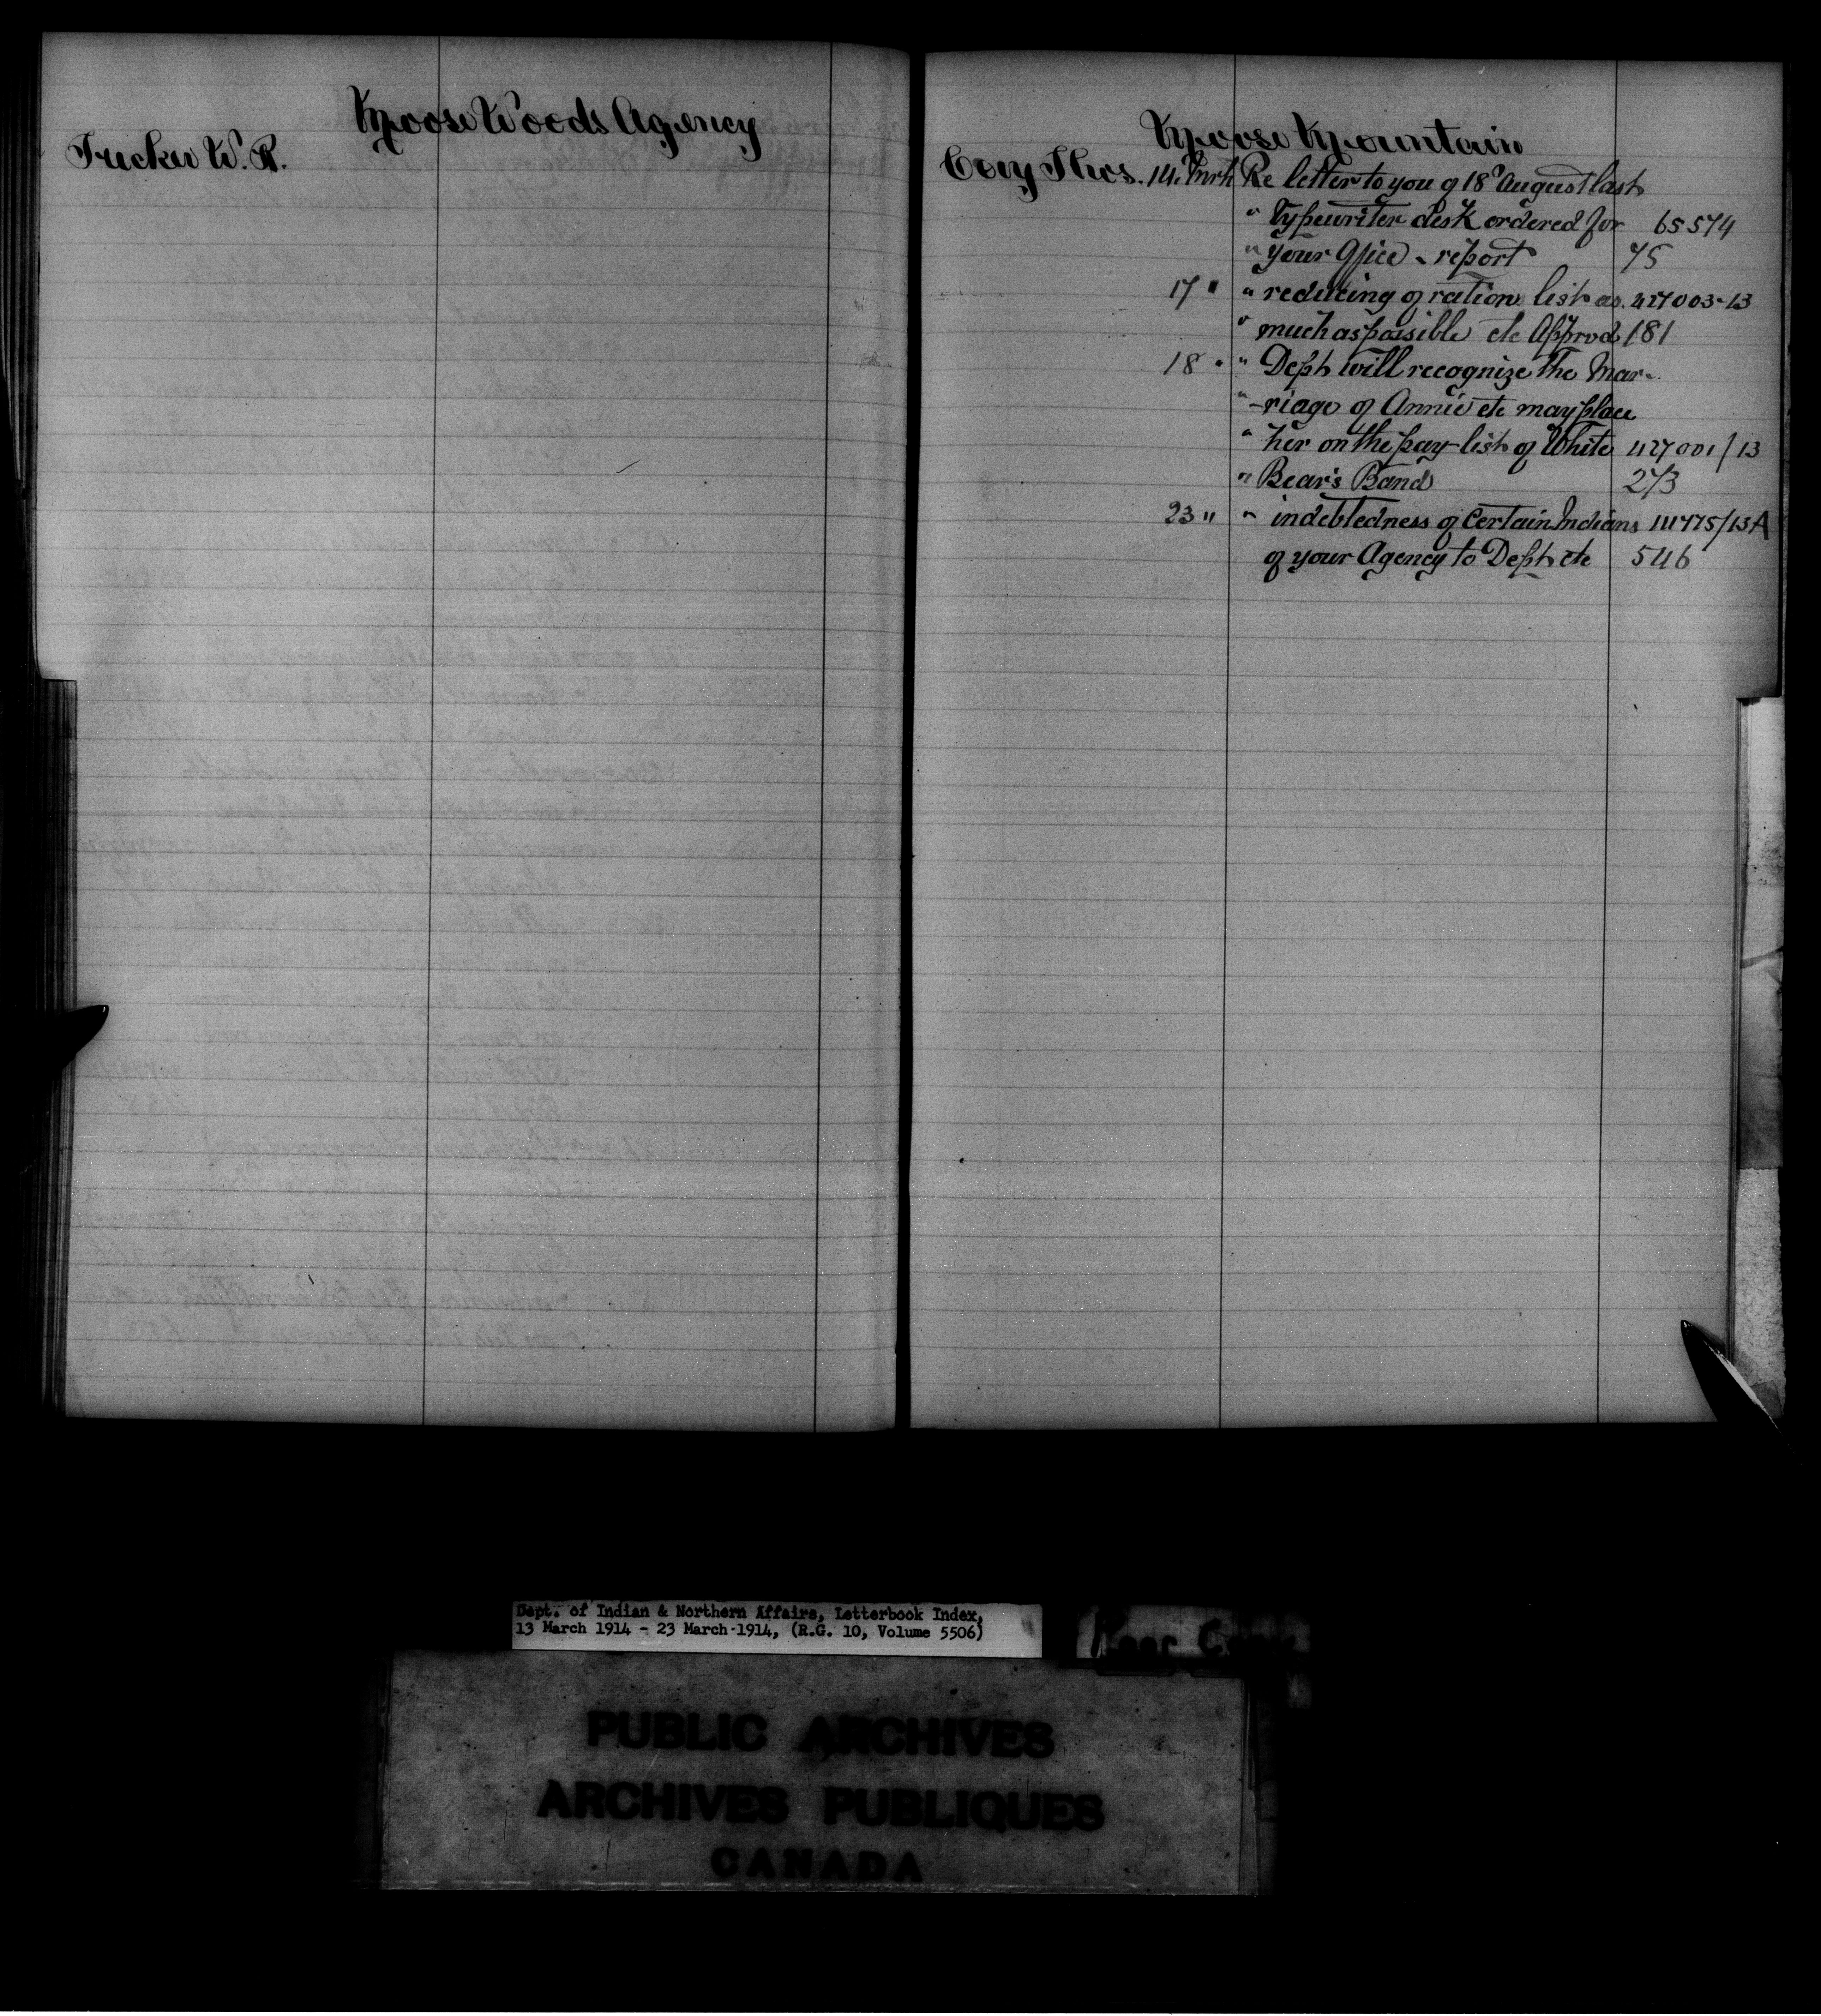 Moose Woods Agency
Tucker W. R.
Moose Mountain
Cory Thos. 14 Mrh Re letter to you of 18th August last
" Typewriter desk ordered for 65574
" your Office - report 75
17 " " reducing of ration list as 427003-13
" much as possible etc Approd 181
18 " " Dept will recognize the Mar-
" -riage of Annie etc may place
" her on the pay-list of White 427001/13
" Bear's Band 273
23 " " indebtedness of Certain Indians 111775/13A
of your Agency to Dept etc 546
Dept. of Indian & Northern Affairs, Letterbook Index,
13 March 1914 - 23 March 1914, (R.G. 10, Volume 5506)
PUBLIC ARCHIVES
ARCHIVES PUBLIQUES
CANADA